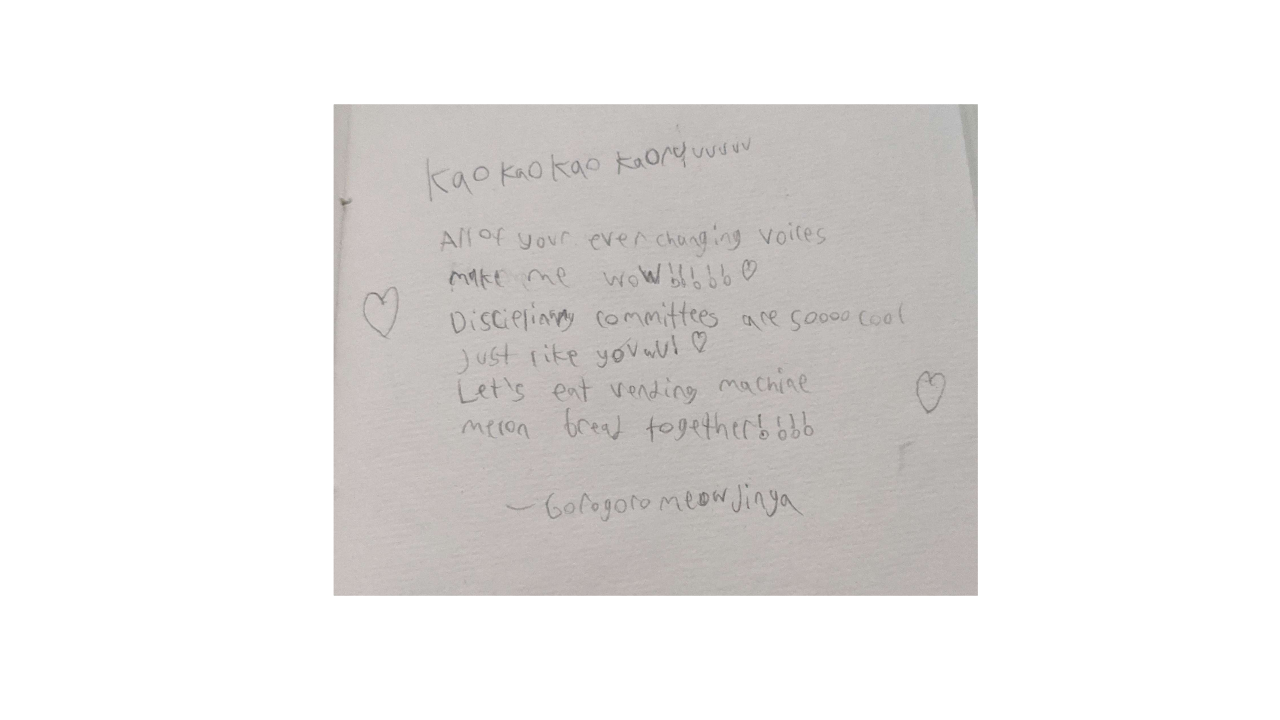 Kao Kao Kao Kaoruuuuuu
All of your ever changing voices
make me woW!!!!!♡
Disciplinary committees are soooo cool
Just rike yoUuU! ♡
Let's eat vending machine
meron bread together!!!!
— Gorogoro meow Jinya